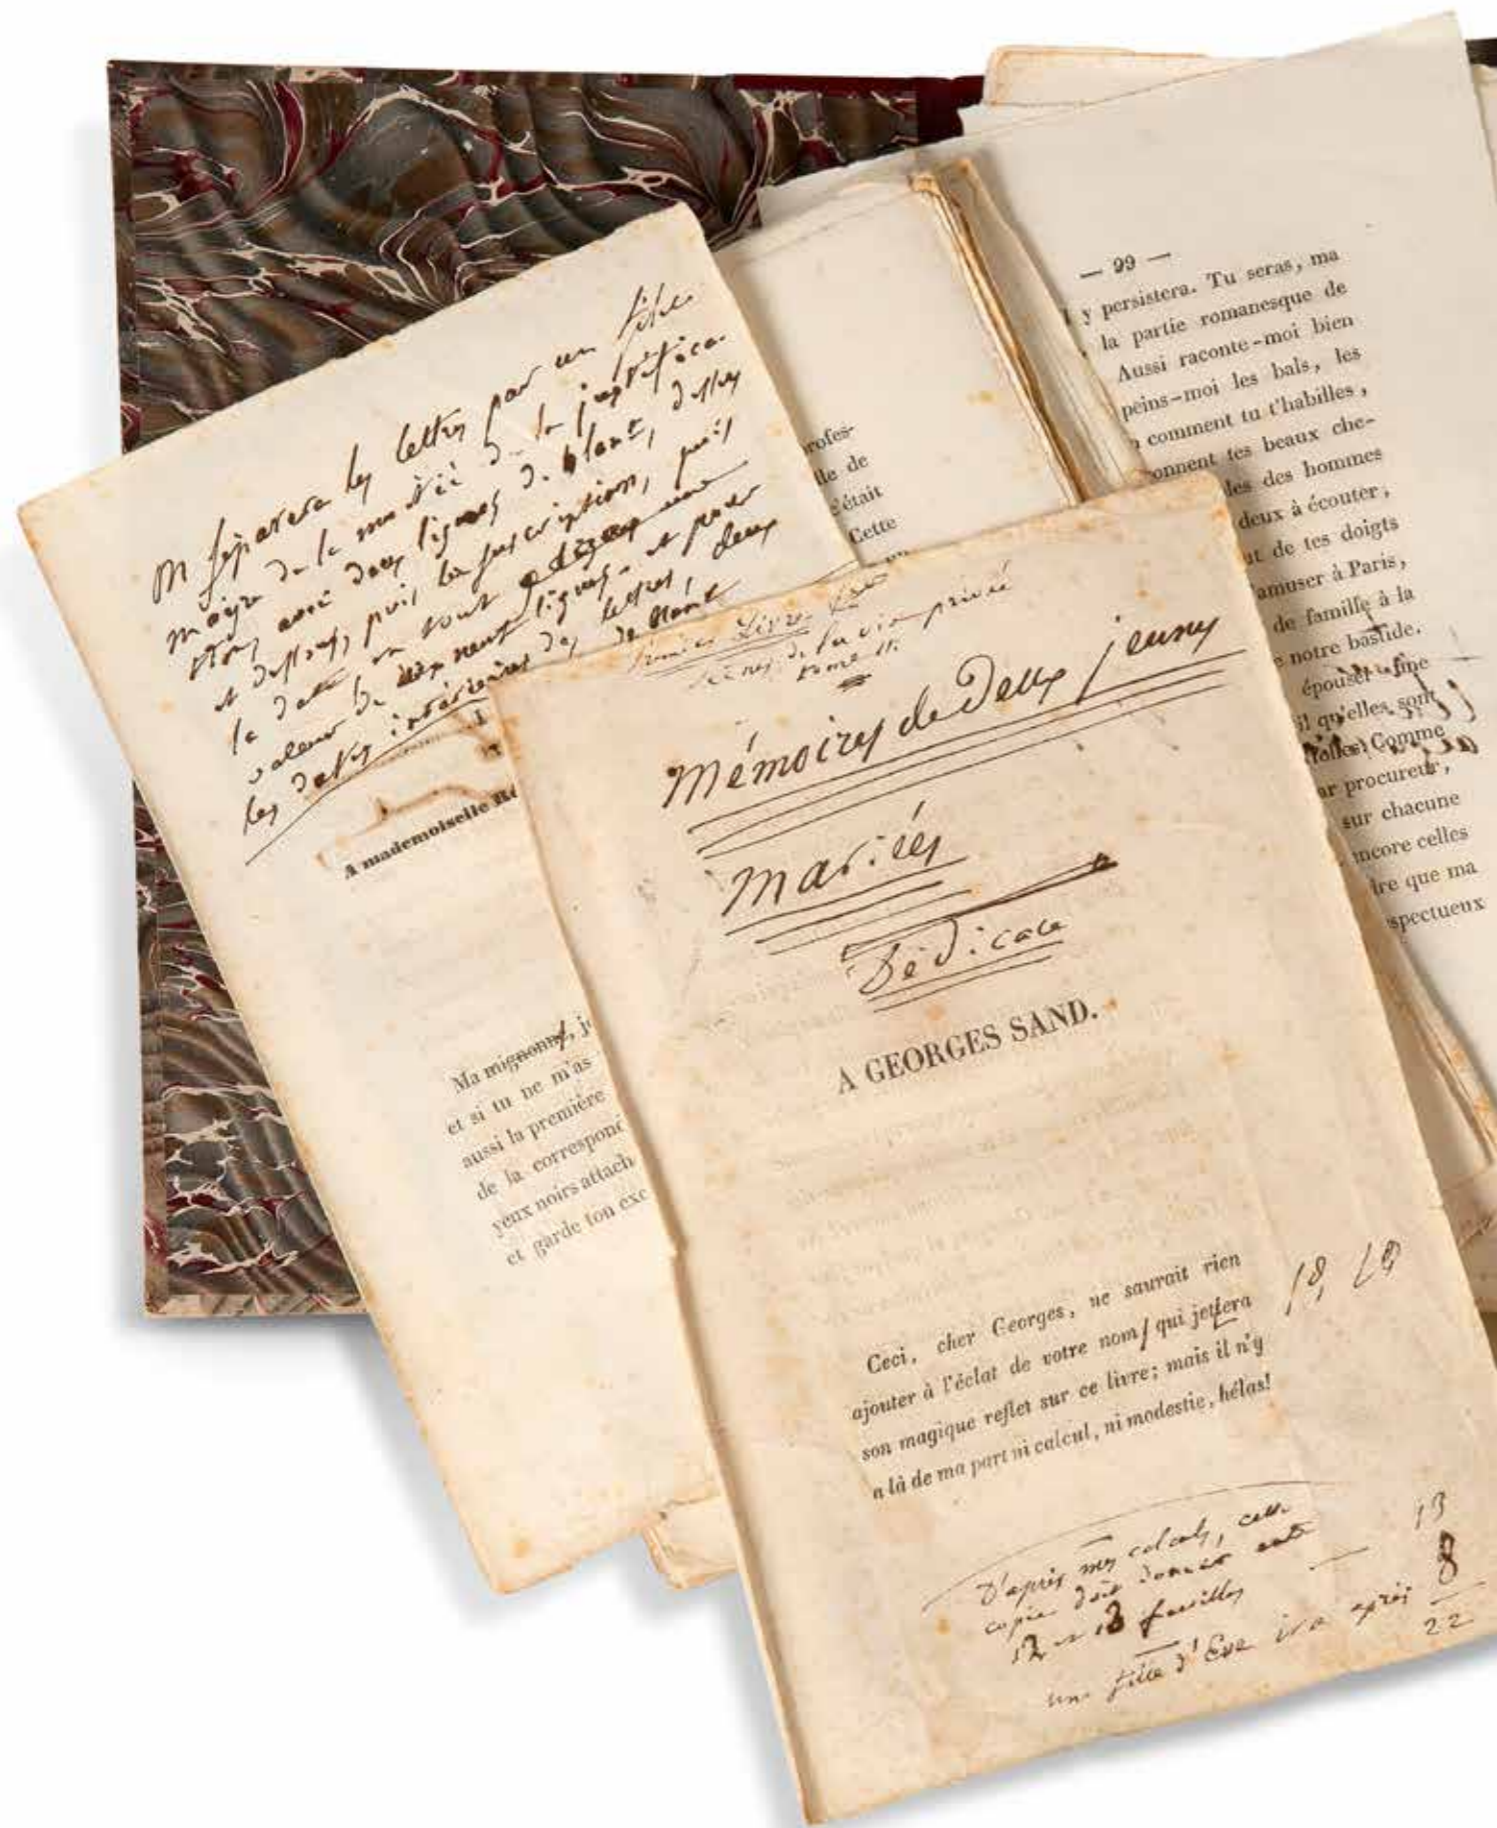 On séparera les lettres par un filet
maigre de la moitié de la justifica-
tion, avec deux lignes de blanc, dessus
et dessous, puis la suscription, puis
la date en tout
valeur de neuf lignes. et pour
les dates intérieures des lettres, deux
de blanc
A mademoiselle
Ma mignonne, j
et si tu ne m'as
aussi la première
de la correspond
yeux noirs attach
et garde ton exc
rofes-
lle de
c'était
Cette
— 99 —
y persistera. Tu seras, ma
la partie romanesque de
Aussi raconte-moi bien
peins-moi les bals, les
comment tu t'habilles,
onnent tes beaux che-
les des hommes
deux à écouter,
ut de tes doigts
'amuser à Paris,
de famille à la
e notre bastide.
épouser
il qu'elles sont
folles) Comme
ar procureur,
sur chacune
encore celles
ire que ma
spectueux
Premier Livre
scènes de la vie privée
tome II.
Mémoires de Deux jeunes
mariées
Dédicace
A GEORGES SAND.
Ceci, cher Georges, ne saurait rien
ajouter à l'éclat de votre nom/ qui jettera
son magique reflet sur ce livre; mais il n'y
a là de ma part ni calcul, ni modestie, hélas!
18, 19
D'après mes calculs, cette
copie doit donner entre
12 et 13 feuilles — 13
une fille d'Eve ira après 8
22